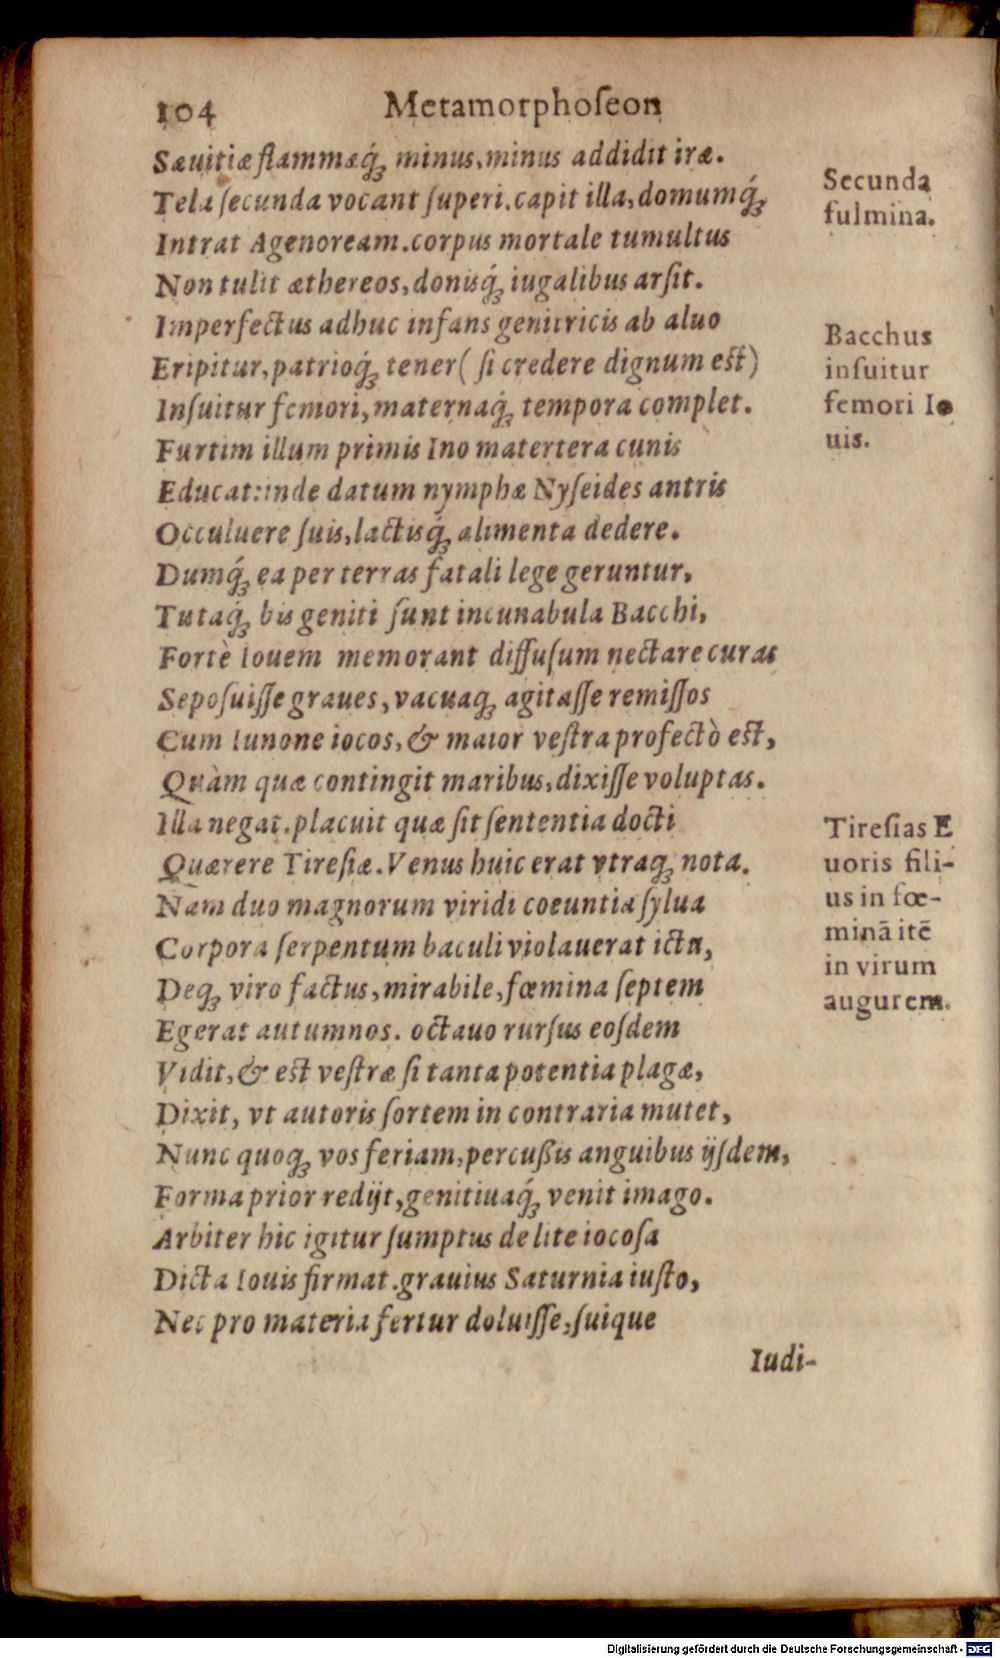 104 Metamorphoſeon
Sæuitiæ flammæq́ꝫ minus, minus addidit iræ.
Tela ſecunda vocant ſuperi. capit illa, domumq́ꝫ
Intrat Agenoream. corpus mortale tumultus
Non tulit æthereos, donisq́ꝫ iugalibus arſit.
Imperfectus adhuc infans genitricis ab aluo
Eripitur, patrioq́ꝫ tener ( ſi credere dignum eſt)
Inſuitur femori, maternaq́ꝫ tempora complet.
Furtim illum primis Ino matertera cunis
Educat: inde datum nymphæ Nyſeides antris
Occuluere ſuis, lactisq́ꝫ alimenta dedere.
Dumq́ꝫ ea per terras fatali lege geruntur,
Tutaq́ꝫ bis geniti ſunt incunabula Bacchi,
Fortè Iouem memorant diffuſum nectare curas
Sepoſuiſſe graues, vacuaqꝫ agitaſſe remiſſos
Cum Iunone iocos, & maior veſtra profectò eſt,
Quàm quæ contingit maribus, dixiſſe voluptas.
Illa negat. placuit quæ ſit ſententia docti
Quærere Tireſiæ. Venus huic erat vtraqꝫ nota.
Nam duo magnorum viridi coeuntia ſylua
Corpora ſerpentum baculi violauerat ictu,
Deqꝫ viro factus, mirabile, fœmina ſeptem
Egerat autumnos. octauo rurſus eoſdem
Vidit, & eſt veſtræ ſi tanta potentia plagæ,
Dixit, vt autoris ſortem in contraria mutet,
Nunc quoqꝫ vos feriam, percußis anguibus ijſdem,
Forma prior redijt, genitiuaq́ꝫ venit imago.
Arbiter hic igitur ſumptus de lite iocoſa
Dicta Iouis firmat. grauius Saturnia iuſto,
Nec pro materia fertur doluiſſe, ſuique
Iudi-
Secunda
fulmina.
Bacchus
inſuitur
femori Io
uis.
Tireſias E
uoris fili-
us in fœ-
minã itẽ
in virum
augurem.
Digitalisierung gefördert durch die Deutsche Forschungsgemeinschaft - DFG